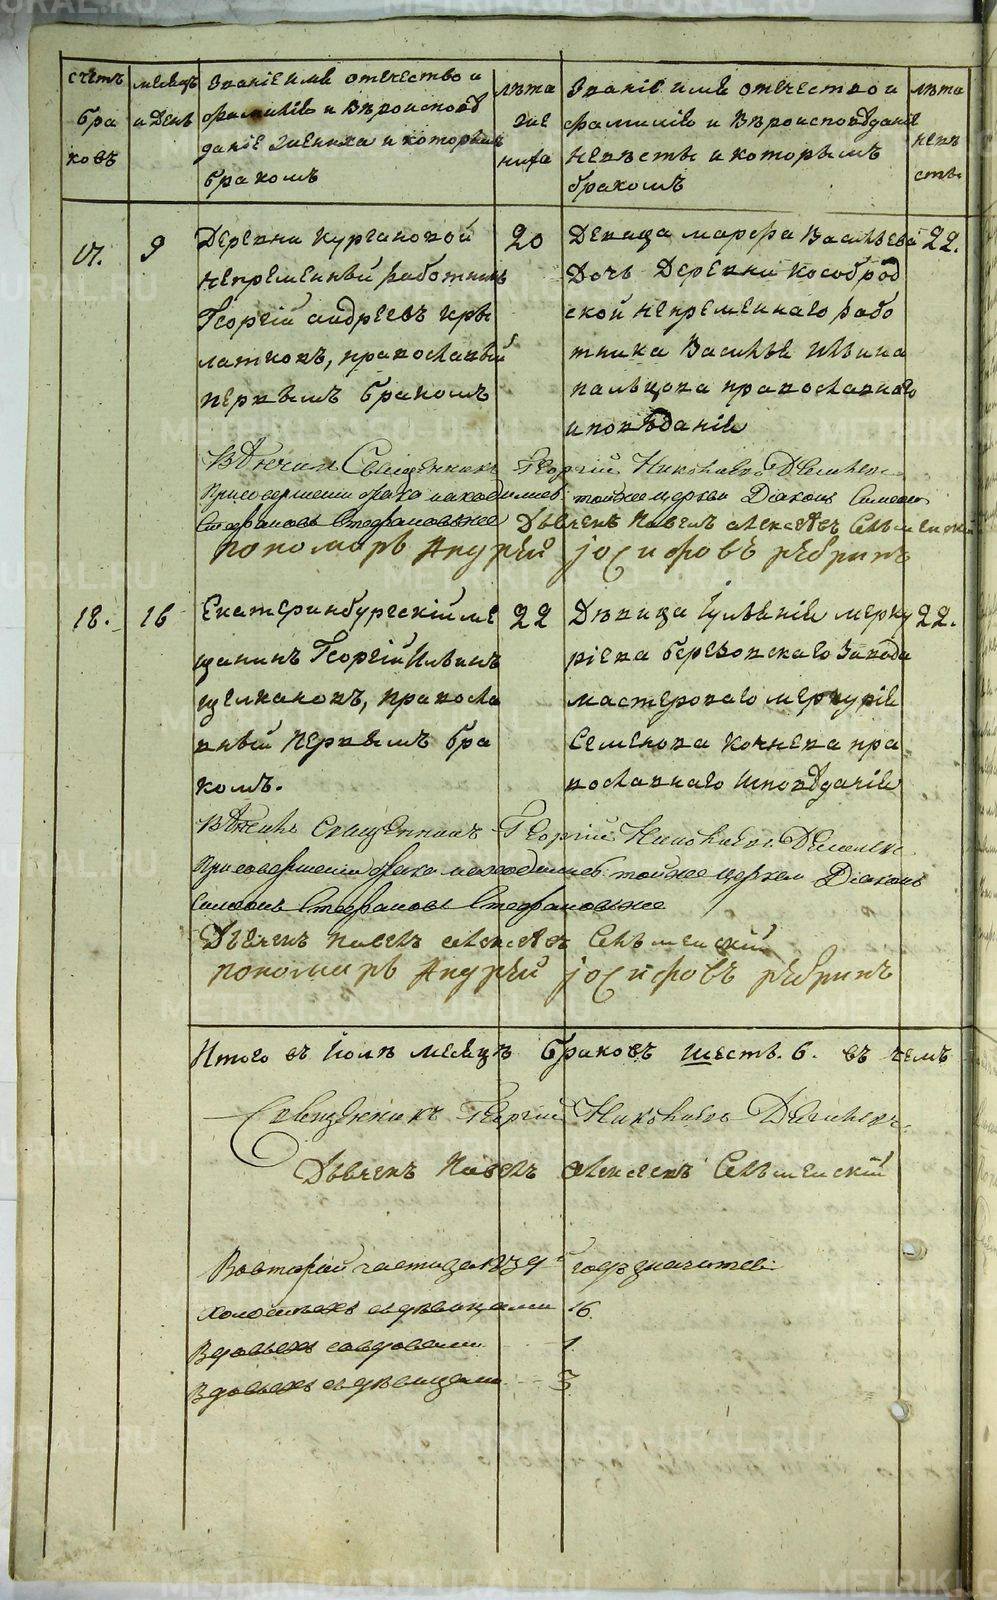 счетъ
бра
ковъ
месяцъ
и день
Званіе имя отечество и
фамилія и вѣроисповѣ
даніе жениха и которымъ
бракомъ
лѣта
же
ниха
Званіе имя отечество и
фамилія и вѣроисповѣданіе
невѣсты и которымъ
бракомъ
лѣта
невѣ
сты
17.
9
Деревни Кургановой
непременный работникъ
Георгій Андреевъ Кры
латковъ, православный
первымъ бракомъ
20
Девица Марфа Васильева
дочь деревни Кособрод
ской непременнаго рабо
тника Василья Ильина
Пальцова православнаго
исповѣданія
22.
Вѣнчалъ Священникъ Георгій Николаевъ
При совершеніи брака находились: тойже церкви Діаконъ Симеонъ
Стефановъ
Дьячекъ Павелъ Алексѣевъ
пономарь Андрей Іосифовъ Рѣбринъ
18.
16
Екатеринбургскій ме
щанинъ Георгій Ильинъ
Щелкановъ, правосла
вный первымъ бра
комъ.
22
Дѣвица Іуліанія Мерку
ріева Березовскаго завода
мастероваго Меркурія
Семенова Кочнева пра
вославнаго исповѣданія
22.
Вѣнчалъ Священникъ Георгій Николаевъ
При совершеніи брака находились: тойже церкви Діаконъ
Симеонъ Стефановъ
Дьячекъ Павелъ Алексѣевъ
пономарь Андрей Іосифовъ Рѣбринъ
Итого въ Іюлѣ месяцѣ браковъ шесть. 6. въ чемъ
Священникъ Георгій Николаевъ
Дьячекъ Павелъ Алексеевъ
Во второй части за 1839й годъ значится:
холостыхъ съ дѣвицами 16.
Вдовыхъ со вдовами 1
Вдовыхъ съ дѣвицами 3
METRIKI.GASO-URAL.RU